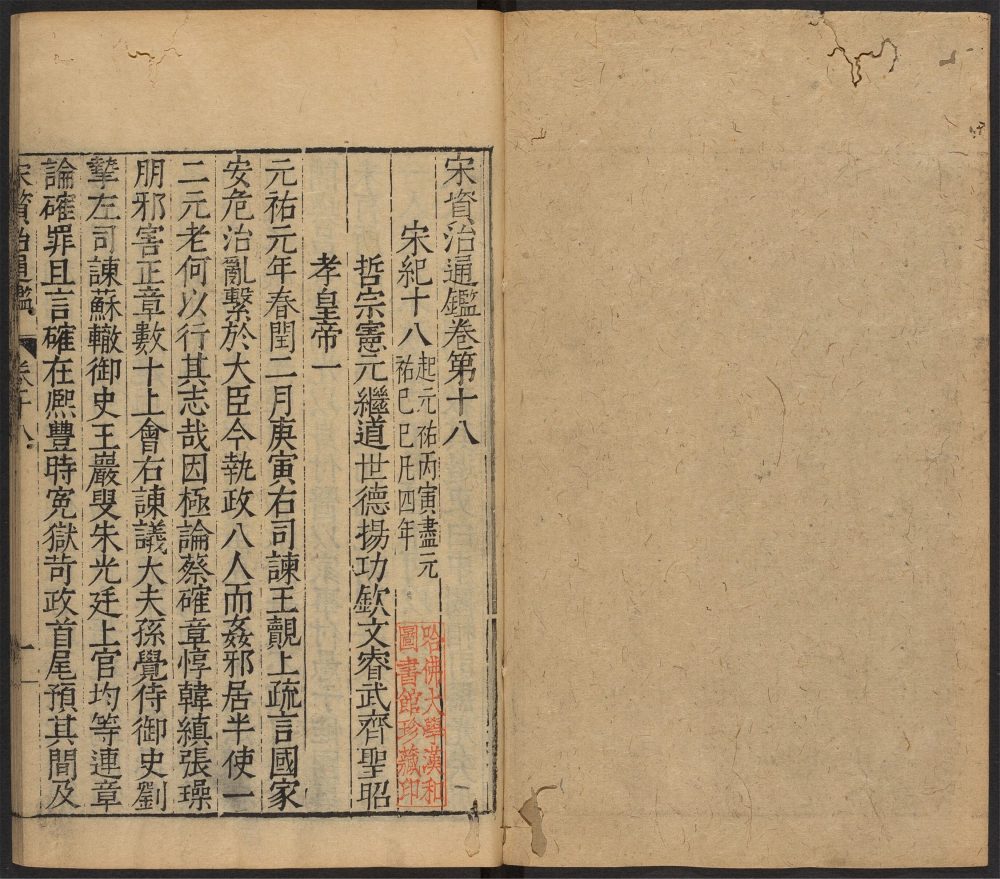 宋資治通鑑卷第十八
宋紀十八起元祐丙寅盡元
祐已巳凡四年
哲宗憲元繼道世德揚功欽文睿武齊聖昭
孝皇帝一
元祐元年春閏二月庚寅右司諫王覿上疏言國家
安危治亂繫於大臣今執政八人而姦邪居半使一
二元老何以行其志哉因極論蔡確章惇韓縝張璪
朋邪害正章數十上會右諫議大夫孫覺侍御史劉
摯左司諫蘇轍御史王巖叟朱光廷上官均等連章
論確罪且言確在熈豐時寃獄苛政首尾預其間及
宋資治通鑑 卷十八
一
哈佛大學漢和
圖書館珍藏印